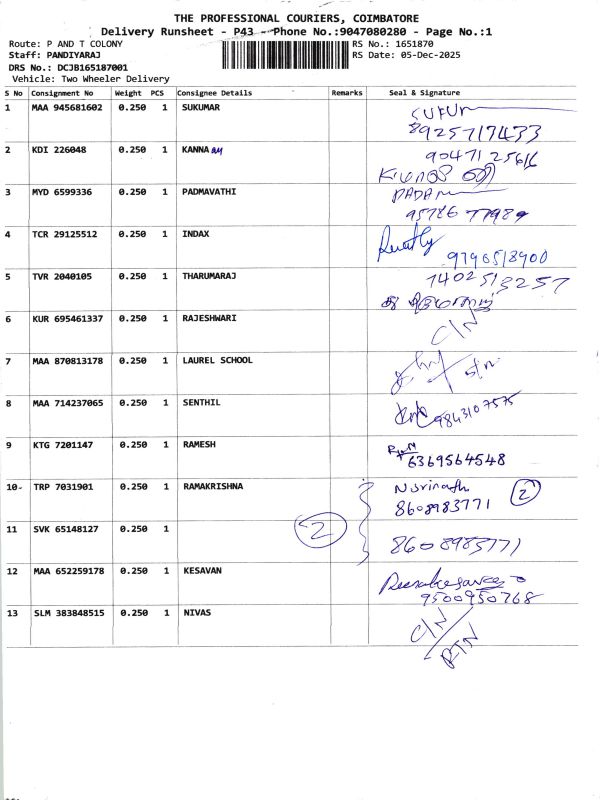 THE PROFESSIONAL COURIERS, COIMBATORE
Delivery Runsheet - P43 - Phone No.:9047080280 - Page No.:1
Route: P AND T COLONY
RS No.: 1651870
Staff: PANDIYARAJ
RS Date: 05-Dec-2025
DRS No.: DCJB165187001
Vehicle: Two Wheeler Delivery
S No Consignment No Weight PCS Consignee Details Remarks Seal & Signature
1 MAA 945681602 0.250 1 SUKUMAR
8925717433
2 KDI 226048 0.250 1 KANNA
9047125616
3 MYD 6599336 0.250 1 PADMAVATHI
95786 77989
4 TCR 29125512 0.250 1 INDAX
9790518900
5 TVR 2040105 0.250 1 THARUMARAJ
7402513257
6 KUR 695461337 0.250 1 RAJESHWARI
C/N
7 MAA 870813178 0.250 1 LAUREL SCHOOL
8 MAA 714237065 0.250 1 SENTHIL
9843107575
9 KTG 7201147 0.250 1 RAMESH
6369564548
10- TRP 7031901 0.250 1 RAMAKRISHNA
N Srinath 2
8608983771
11 SVK 65148127 0.250 1 2
8608983771
12 MAA 652259178 0.250 1 KESAVAN
9500950768
13 SLM 383848515 0.250 1 NIVAS
C/N
RTN